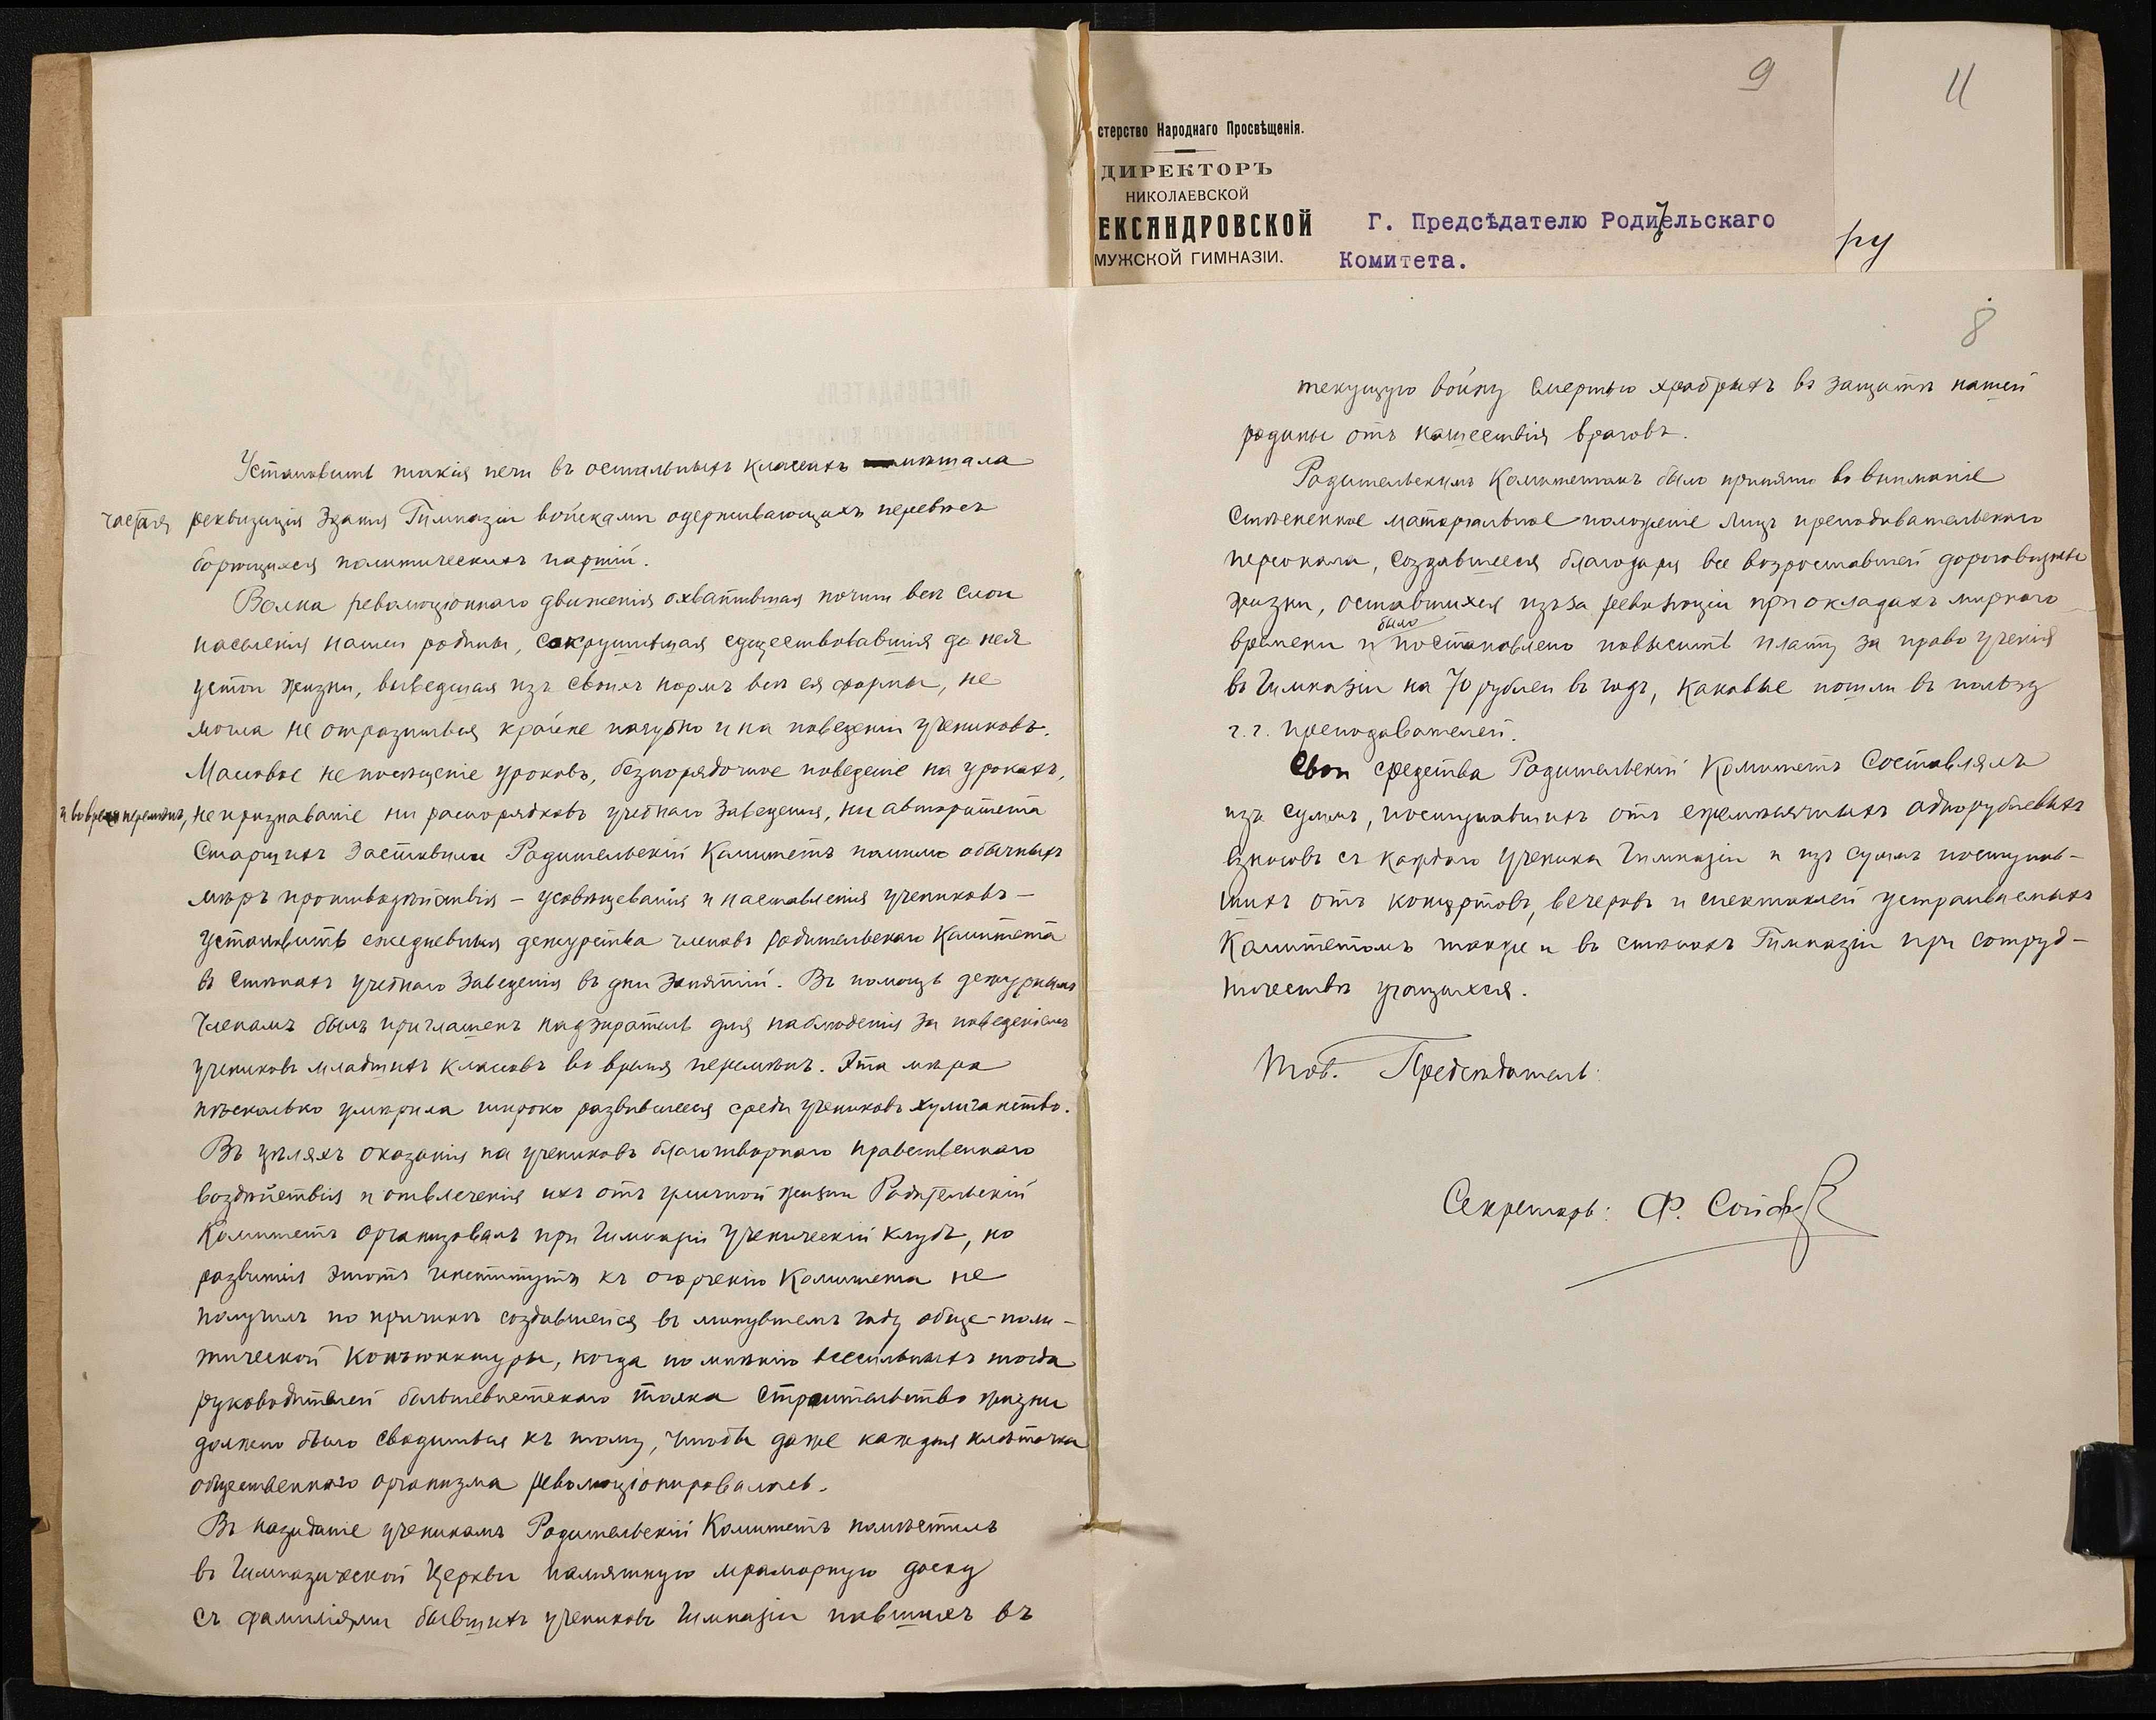 9
11
стерство Народнаго Просвѣщенія.
ДИРЕКТОРЪ
НИКОЛАЕВСКОЙ
ЕКСАНДРОВСКОЙ
МУЖСКОЙ ГИМНАЗІИ.
Г. Предсѣдателю Родительскаго
Комитета.
ру
Установить такія печи въ остальныхъ классахъ мѣшала
частая реквизиція зданія Гимназіи войсками одерживающихъ перевѣсъ
борющихся политическихъ партій.
Волна революціоннаго движенія охватившая почти всѣ слои
населенія нашей родины, сокрушившая существовавшія до нея
устои жизни, выведшая изъ своихъ нормъ всѣ ея формы, не
могла не отразиться крайне пагубно и на поведеніи учениковъ.
Массовое непосѣщеніе уроковъ, безпорядочное поведеніе на урокахъ,
и во время перемѣнъ, непризнаваніе ни распорядковъ учебнаго заведенія, ни авторитета
старшихъ заставили Родительскій Комитетъ помимо обычныхъ
мѣръ противодѣйствія – усовѣщеванія и наставленія учениковъ –
установить ежедневныя дежурства членовъ Родительскаго Комитета
въ стѣнахъ учебнаго заведенія въ дни занятій. Въ помощь дежурнымъ
членамъ былъ приглашенъ надзиратель для наблюденія за поведеніемъ
учениковъ младшихъ классовъ во время перемѣнъ. Эта мѣра
нѣсколько умѣрила широко развившееся среди учениковъ хулиганство.
Въ цѣляхъ оказанія на учениковъ благотворнаго нравственнаго
воздѣйствія и отвлеченія ихъ отъ уличной жизни Родительскій
Комитетъ организовалъ при Гимназіи ученическій клубъ, но
развитія этотъ институтъ къ огорченію Комитета не
получилъ по причинѣ создавшейся въ минувшемъ году обще-поли-
тической конъюнктуры, когда по мнѣнію всесильныхъ тогда
руководителей большевистскаго толка строительство жизни
должно было сводиться къ тому, чтобы даже каждая клѣточка
общественнаго организма революціонировалась.
Въ назиданіе ученикамъ Родительскій Комитетъ помѣстилъ
въ Гимназической Церкви памятную мраморную доску
съ фамиліями бывшихъ учениковъ Гимназіи павшихъ въ
8
текущую войну смертью храбрыхъ въ защитѣ нашей
родины отъ нашествія враговъ.
Родительскимъ Комитетомъ было принято во вниманіе
стѣсненное матеріальное положеніе лицъ преподавательскаго
персонала, создавшееся благодаря все возроставшей дороговизнѣ
жизни, оставшихся изъ за революціи при окладахъ мирнаго
времени и было постановлено повысить плату за право ученія
въ Гимназіи на 70 рублей въ годъ, каковые пошли въ пользу
г.г. преподавателей.
Свои средства Родительскій Комитетъ составлялъ
изъ суммъ, поступавшихъ отъ ежемѣсячныхъ однорублевыхъ
взносовъ съ каждаго ученика Гимназіи и изъ суммъ поступав-
шихъ отъ концертовъ, вечеровъ и спектаклей устраиваемыхъ
Комитетомъ также и въ стѣнахъ Гимназіи при сотруд-
ничествѣ учащихся.
Тов. Предсѣдателя:
Секретарь: Ф.